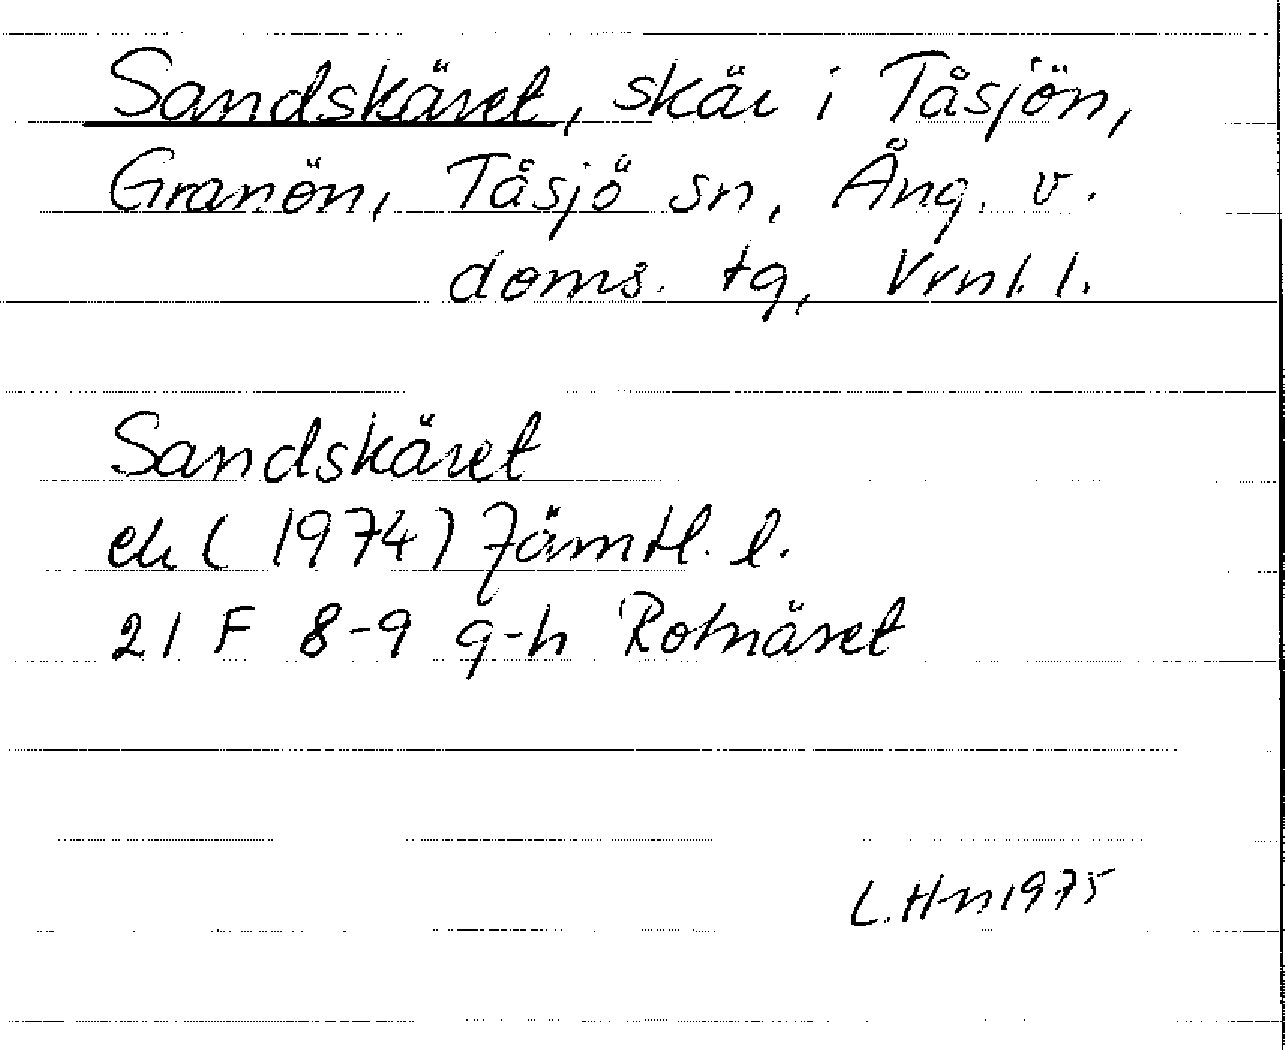 Sandskäret, skär i Tåsjön,
Granön, Tåsjö sn, Ång. v.
doms. tg, Vrnl. l.
Sandskäret
ek (1974) Jämtl. l.
21 F 8-9 g-h Rotnäset
L. H-n 1975